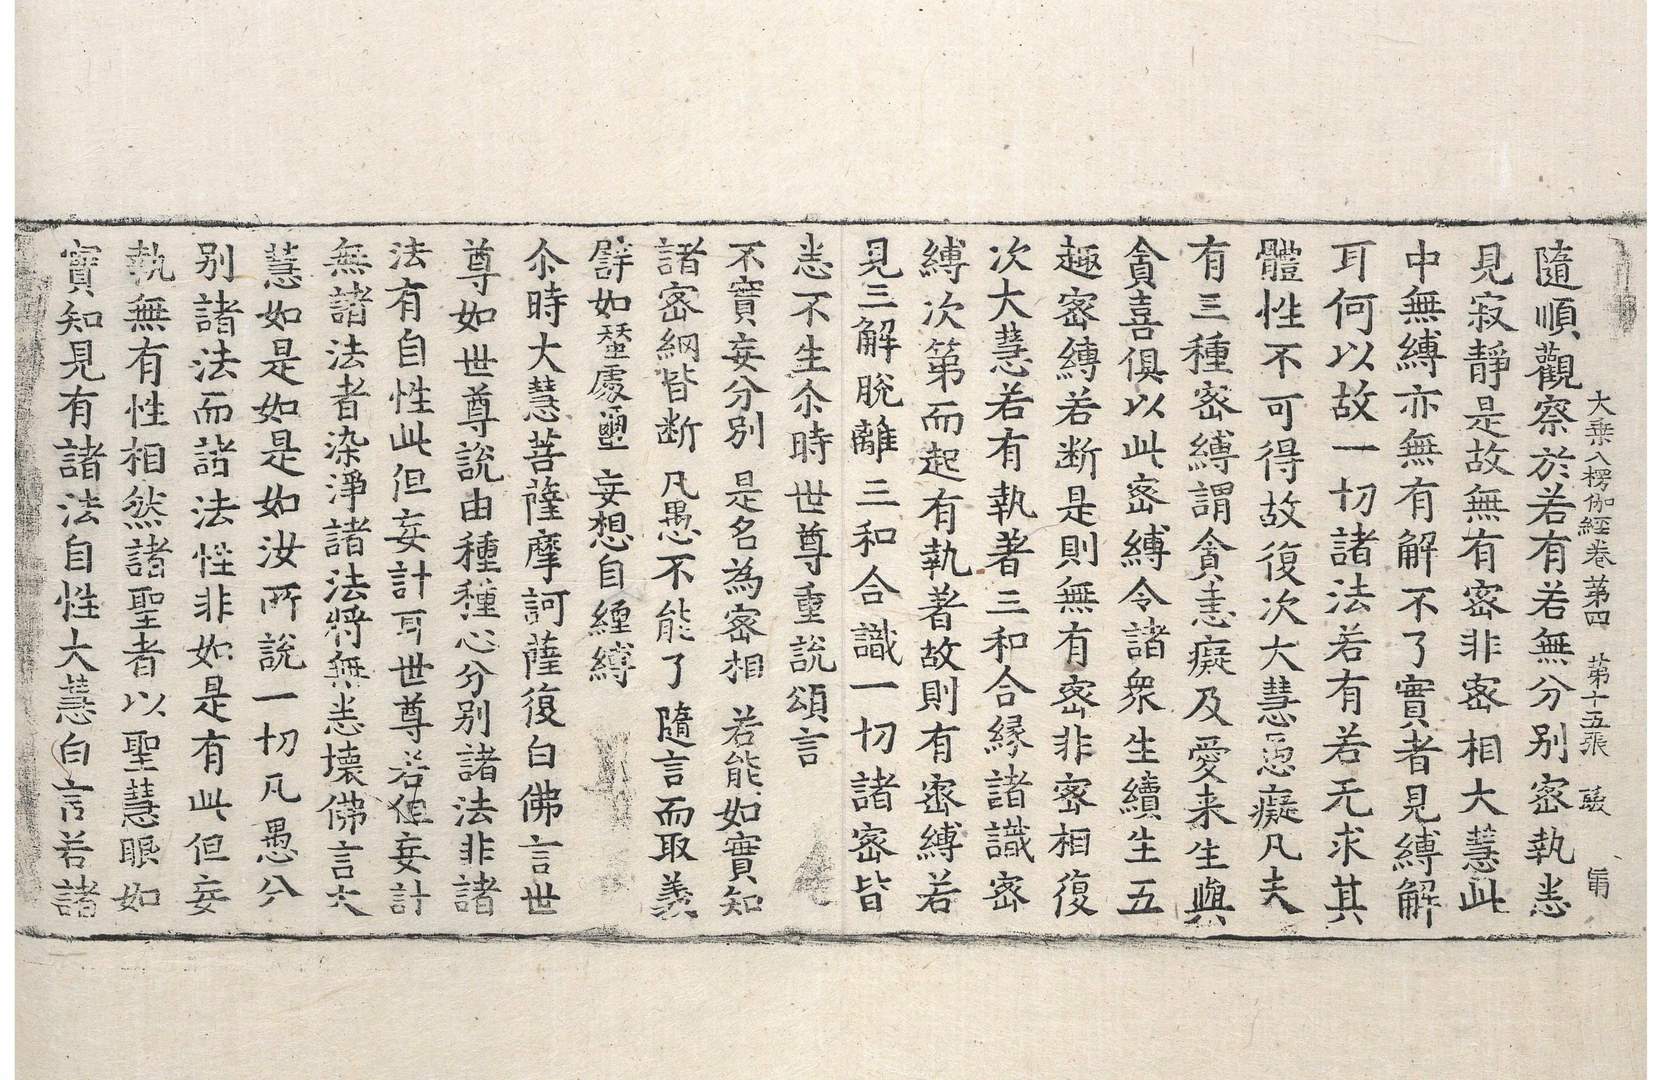 大乗入楞伽經卷第四 第十五張
隨順觀察於若有若無分别密執悉
見寂靜是故無有密非密相大慧此
中無縛亦無有解不了實者見縛解
耳何以故一切諸法若有若无求其
體性不可得故復次大慧愚癡凡夫
有三種密縛謂貪恚癡及愛来生與
貪喜俱以此密縛令諸衆生續生五
趣密縛若断是則無有密非密相復
次大慧若有執著三和合縁諸識密
縛次第而起有執著故則有密縛若
見三解脫離三和合識一切諸密皆
悉不生尒時世尊重說頌言
不實妄分别 是名為密相 若能如實知
諸密網皆断 凡愚不能了 隨言而取義
譬如蝅處𠕀 妄想自纒縛
尒時大慧菩薩摩訶薩復白佛言世
尊如世尊說由種種心分别諸法非諸
法有自性此但妄計耳世尊若但妄計
無諸法者染淨諸法將無悉壊佛言大
慧如是如是如汝所說一切凡愚分
别諸法而諸法性非如是有此但妄
執無有性相然諸聖者以聖慧眼如
實知見有諸法自性大慧白言若諸